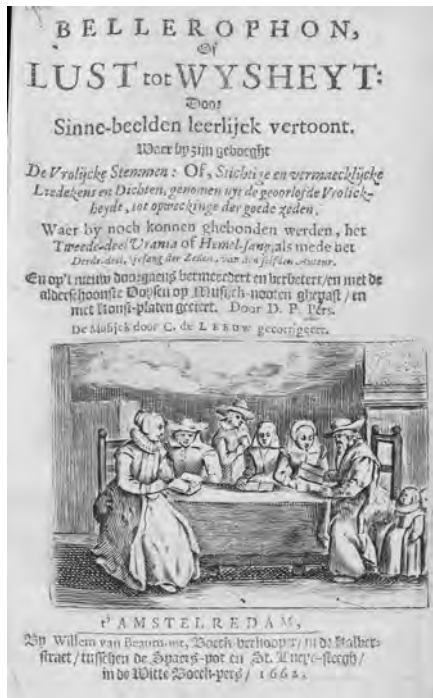 BELLEROPHON,
Of
LUST tot WYSHEYT:
Door
Sinne-beelden leerlijck vertoont.
Waer by zijn gevoeght
De Vrolijcke Stemmen: Of, Stichtige en vermaecklijcke
Liedekens en Dichten, genomen uyt de geoorlofde Vrolick-
heyde, tot opweckinge der goede zeden.
Waer by noch konnen ghebonden werden, het
Tweede-deel Urania of Hemel-sang, als mede het
Derde-deel, Gesang der Zeden, van den selfden Auteur.
En op't nieuw doorgaens vermeerdert en verbetert / en met de
alderschoonste Voysen op Musijck-nooten ghepast / en
met Konst-platen geciert. Door D. P. Pers.
De Musijck door C. de LEEUW gecorrigeert.
t'AMSTELREDAM,
By Willem van Beaumont, Boeck-verkooper / in de Kalver-
straet / tusschen de Spaens-pot en St. Lucye-steegh /
in de Witte Boeck-pers / 1662.